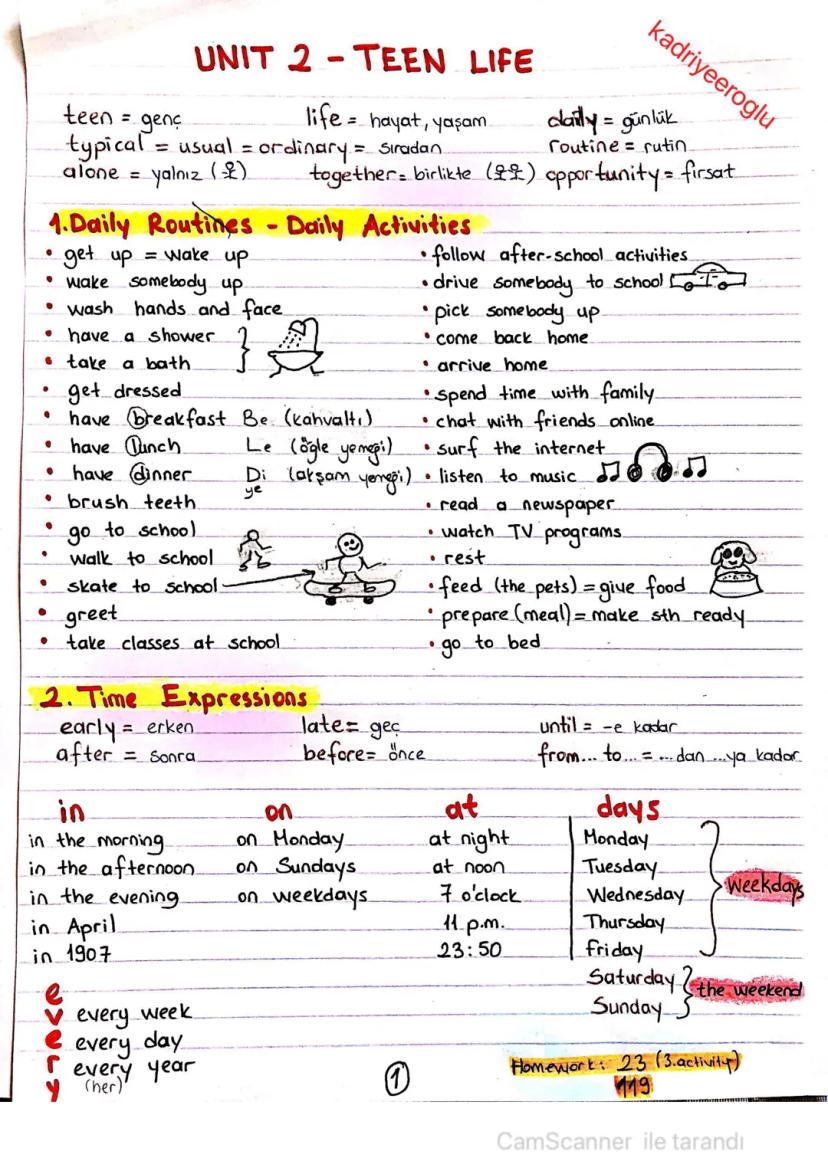 UNIT 2 - TEEN LIFE
kadriyeeroglu
teen = genç life = hayat, yaşam daily = günlük
typical = usual = ordinary = sıradan routine = rutin
alone = yalnız ( ) together = birlikte ( ) opportunity = fırsat
1.Daily Routines - Daily Activities
• get up = wake up
• wake somebody up
• wash hands and face
• have a shower
• take a bath
• get dressed
• have breakfast Be (kahvaltı)
• have lunch Le (öğle yemeği)
• have dinner Di (akşam yemeği)
ye
• brush teeth
• go to school
• walk to school
• skate to school
• greet
• take classes at school
• follow after-school activities
• drive somebody to school
• pick somebody up
• come back home
• arrive home
• spend time with family
• chat with friends online
• surf the internet
• listen to music
• read a newspaper
• watch TV programs
• rest
• feed (the pets) = give food
• prepare (meal) = make sth ready
• go to bed
2. Time Expressions
early = erken late = geç until = -e kadar
after = sonra before = önce from... to... = ...dan ...ya kadar
in on at days
in the morning on Monday at night Monday
in the afternoon on Sundays at noon Tuesday
in the evening on weekdays 7 o'clock Wednesday weekdays
in April 11 p.m. Thursday
in 1907 23:50 friday
Saturday the weekend
Sunday
every
every week
every day
every year
(her)
1
Homework: 23 (3.activity)
119
CamScanner ile tarandı